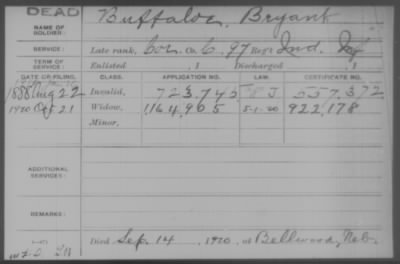 DEAD
NAME OF SOLDIER: Buffaloe, Bryant
SERVICE: Late rank, Cor Co. C, 97 Reg't Ind. Inf
TERM OF SERVICE: Enlisted , 1 Discharged , 1
DATE OF FILING. CLASS. APPLICATION NO. LAW. CERTIFICATE NO.
1888 Aug 22 Invalid, 723,745 557,372
1920 21 Widow, 1164,905 5-1-20 922,178
Minor,
ADDITIONAL SERVICES:
REMARKS:
Died Sep. 14, 1920, at Bellwood, Neb.